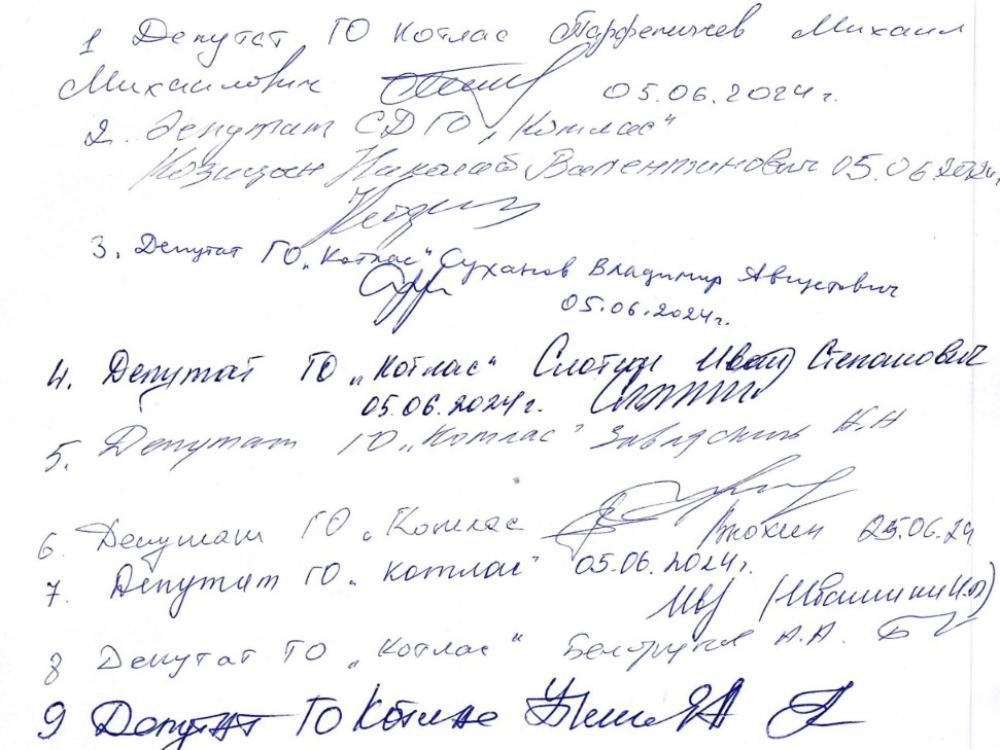 1 Депутат ГО Котлас Парфенычев Михаил
Михаилович 05.06.2024г.
2. Депутат СД ГО „Котлас"
Николай Валентинович 05.06.2024г.
3. Депутат ГО „Котлас" Суханов Владимир Августович
05.06.2024г.
4. Депутат ГО „Котлас" Слотин Иван Степанович
05.06.2024г.
5. Депутат ГО „Котлас"
6. Депутат ГО „Котлас
7. Депутат ГО „Котлас" 05.06.2024г.
8 Депутат ГО „Котлас" А.А.
9 Депутат ГО Котлас